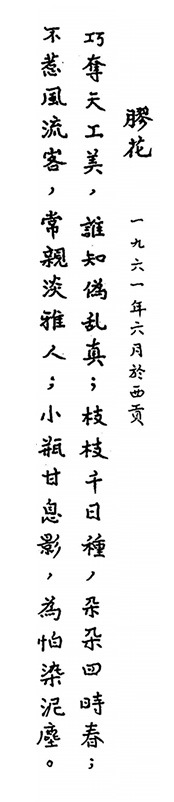 膠花
一九六一年六月於西貢
巧奪天工美，誰知偽乱真；枝枝千日種，朵朵四時春；
不惹風流客，常親淡雅人；小瓶甘息影，為怕染泥塵。